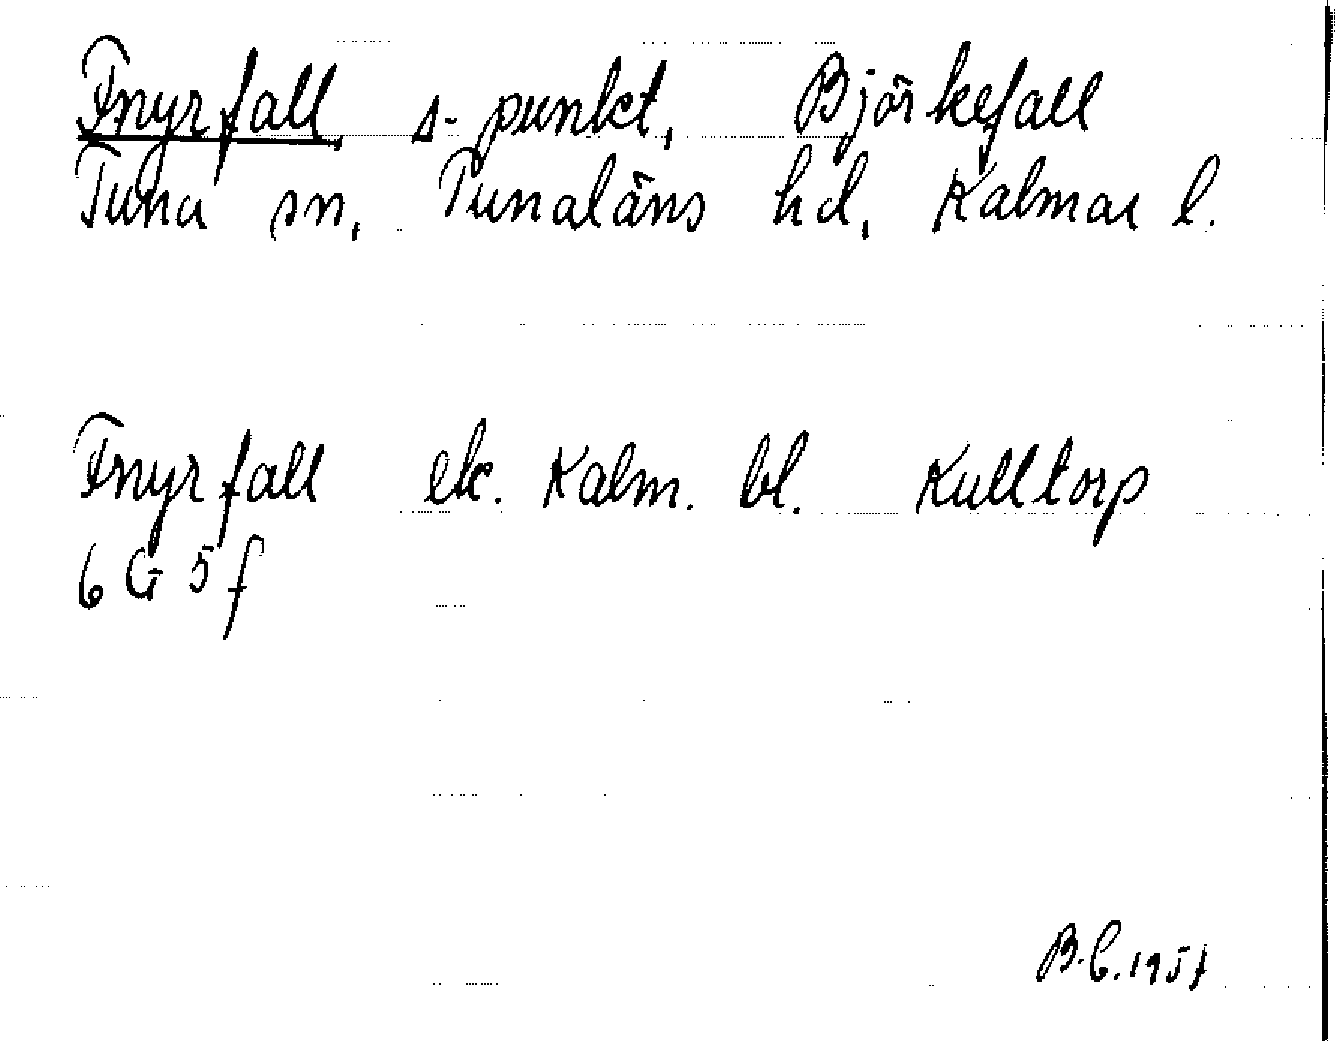 Fnyrfall s-punkt, Björkefall
Tuna sn, Tunaläns hd, Kalmar l.
Fnyrfall ek. Kalm. bl. Kulltorp
6 G 5 f